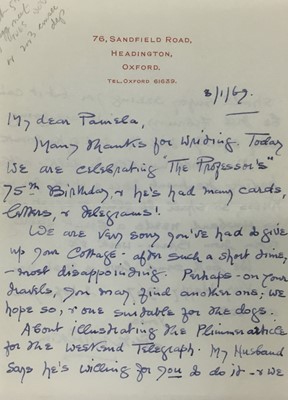 76, SANDFIELD ROAD,
HEADINGTON,
OXFORD.
TEL. OXFORD 61639.
3/1/67.
My dear Pamela,
Many thanks for writing. Today
we are celebrating "The Professor's"
75th Birthday, & he's had many cards,
letters, & telegrams!
We are very sorry you've had to give
up your Cottage - after such a short time,
- most disappointing. Perhaps - on your
travels, you may find another one; we
hope so, & one suitable for the dogs.
About illustrating the Plimmer article
for the Weekend Telegraph. My Husband
says he's willing for you to do it - & we